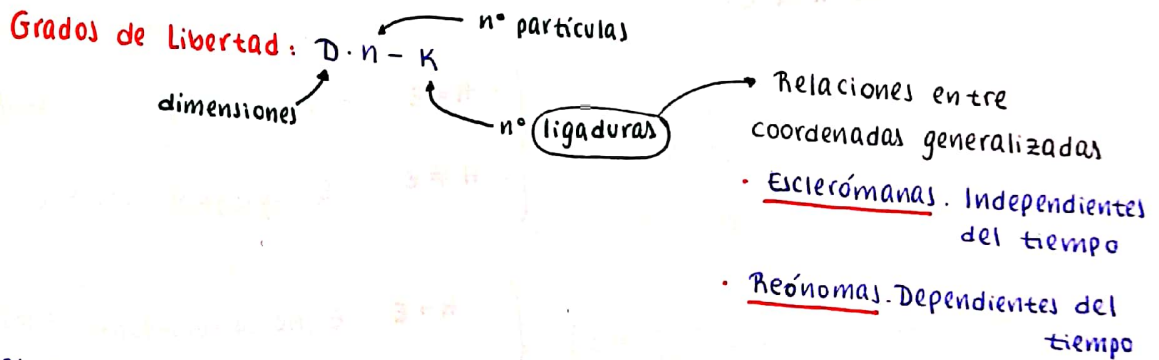 Grados de Libertad: D·n - K
nº partículas
dimensiones
nº ligaduras
Relaciones entre
coordenadas generalizadas
· Esclerómanas. Independientes
del tiempo
· Reónomas. Dependientes del
tiempo